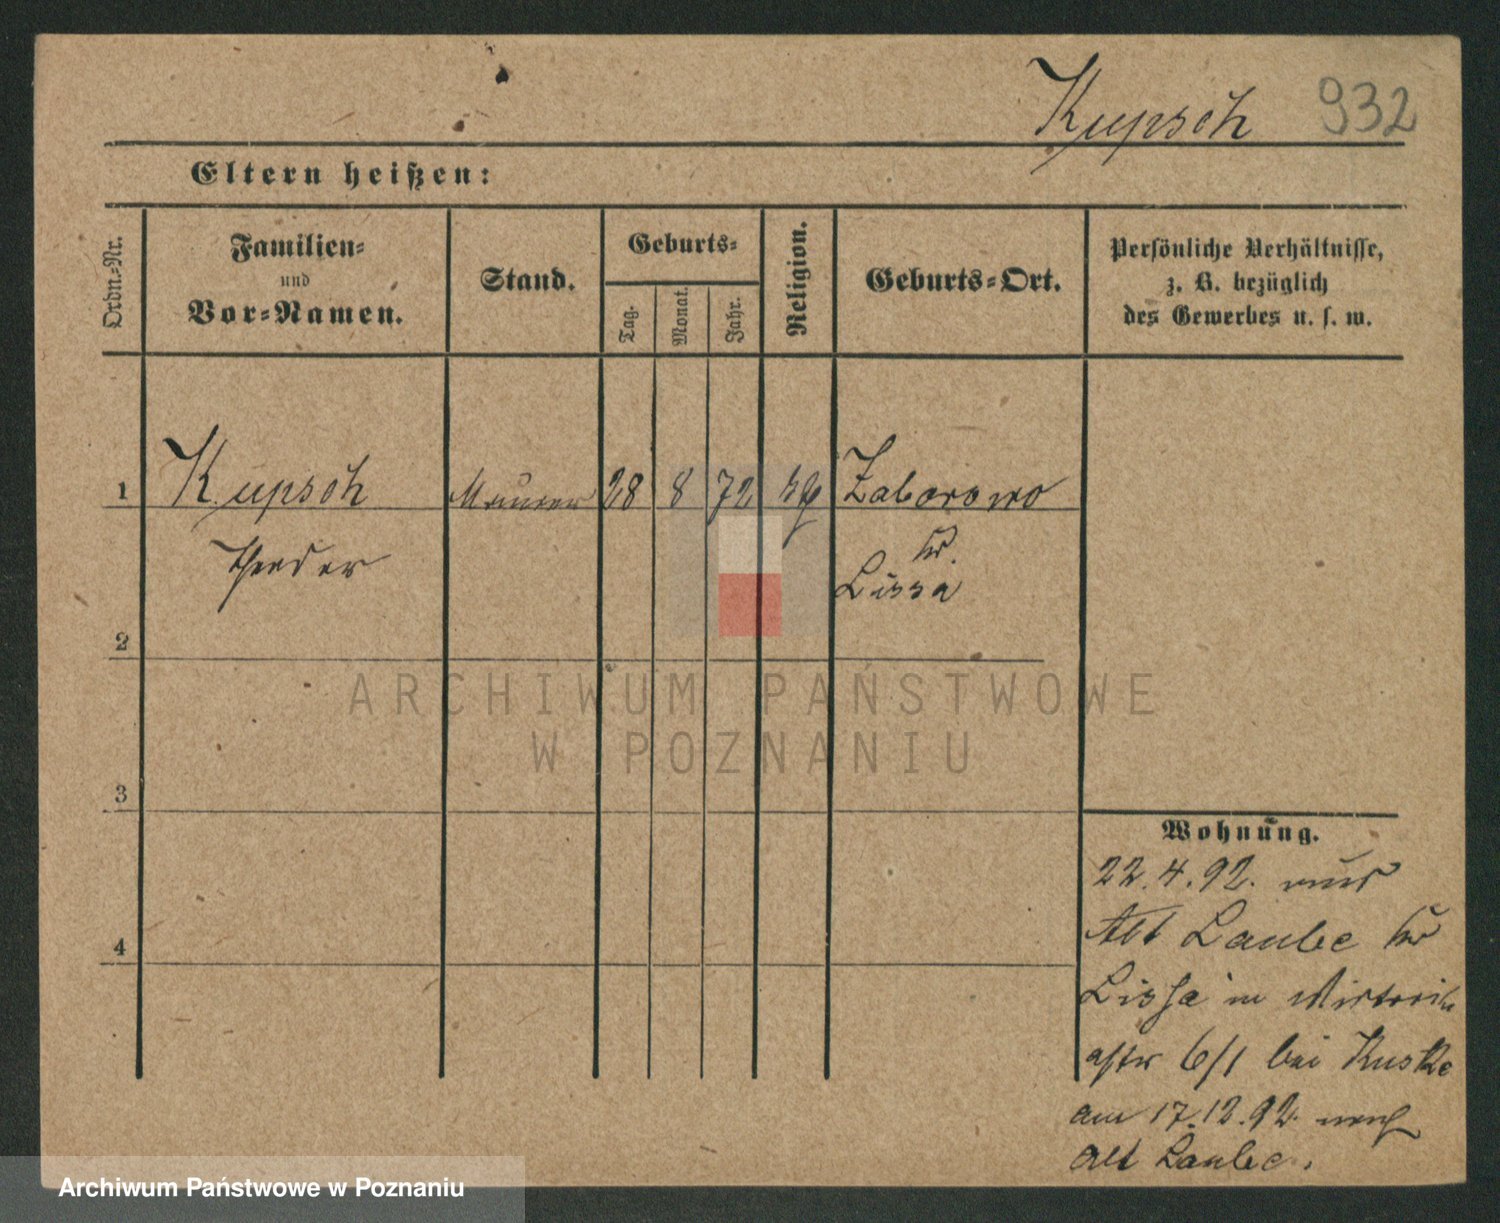 Kupsch 932
Eltern heißen:
Ordn.-Nr.
Familien-
und
Vor-Namen.
Stand.
Geburts-
Tag.
Monat.
Jahr.
Religion.
Geburts-Ort.
Persönliche Verhältnisse,
z. B. bezüglich
des Gewerbes u. s. w.
1 Kupsch Maurer 28 8 72 Zaborowo
Theodor Kr.
Lissa
2
ARCHIWUM PAŃSTWOWE
W POZNANIU
3
4
Wohnung.
22.4.92. aus
Alt Laube Kr
Lissa in
6/1 bei Kuske
am 17.12.92. nach
Alt Laube.
Archiwum Państwowe w Poznaniu